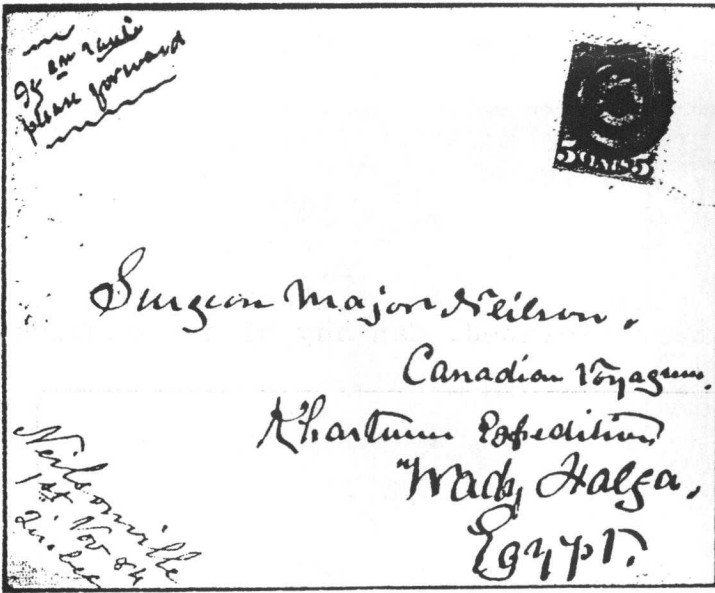 If en route
please forward
5 CENTS 5
Surgeon Major Neilson,
Canadian Voyageurs,
Khartum Expedition
Wady Halfa,
Egypt.
Neilsonville
1st Nov 84
Quebec